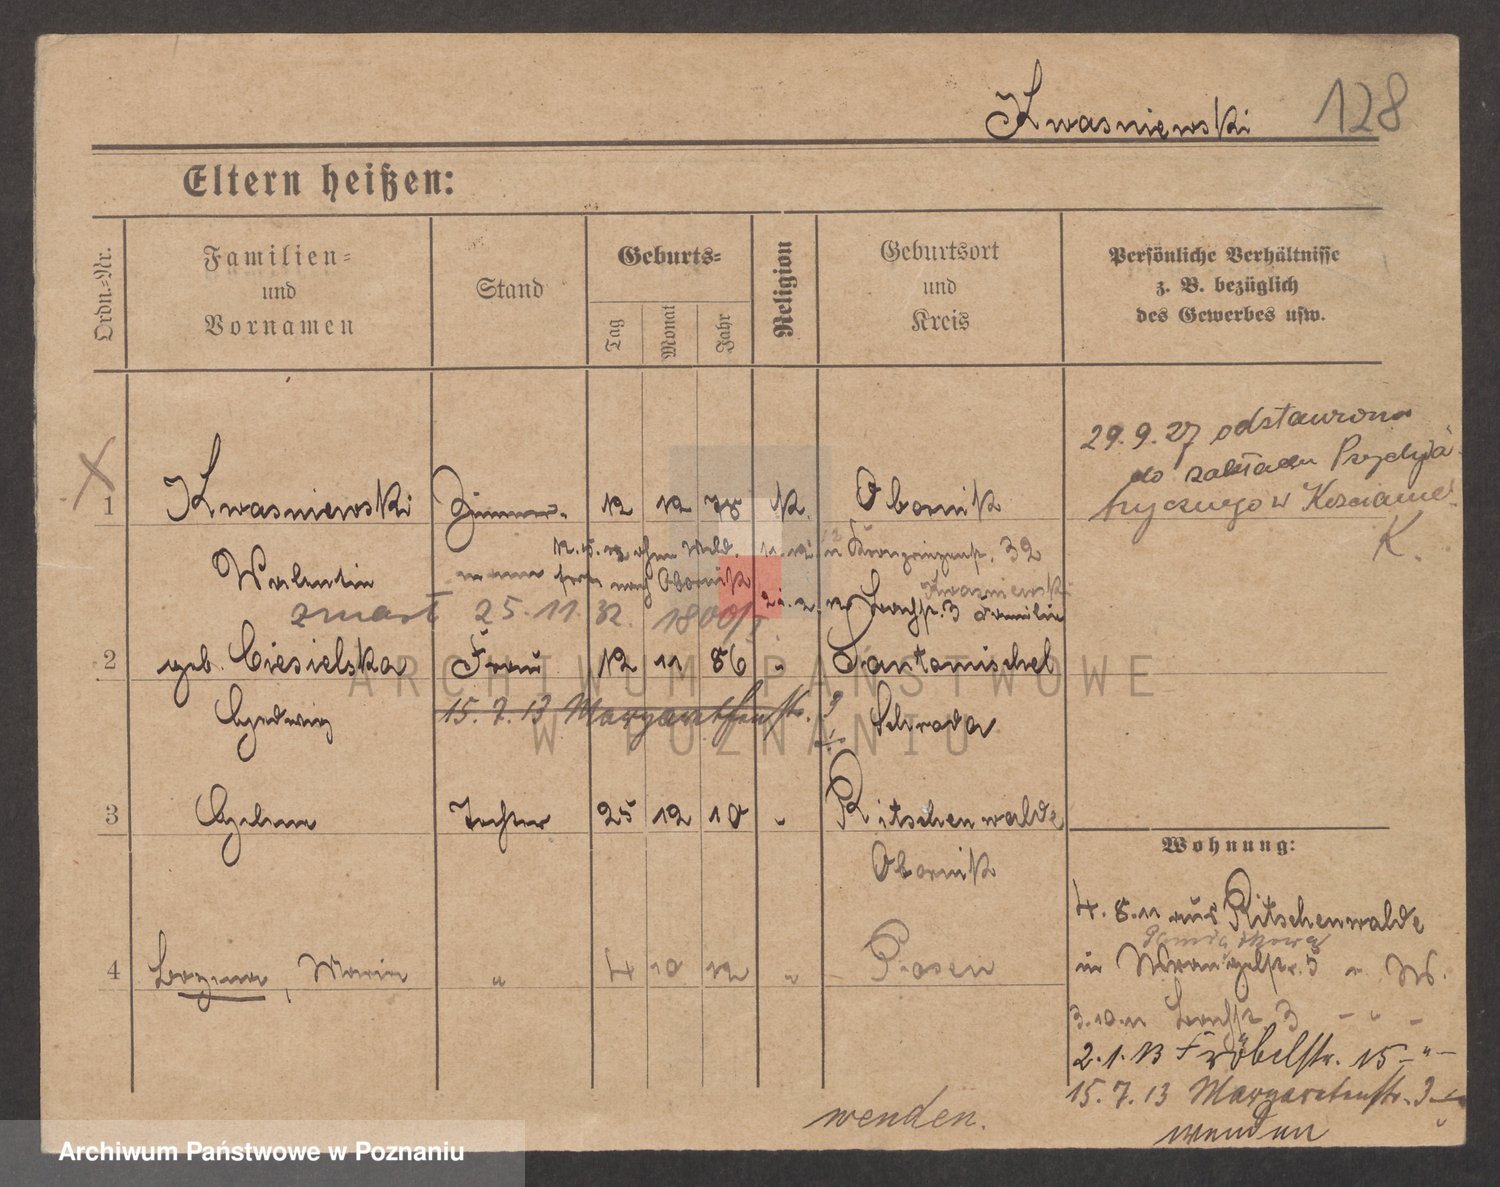 Kwasniewski 128
Eltern heißen:
Ordn.-Nr.
Familien=
und
Vornamen
Stand
Geburts=
Tag
Monat
Jahr
Religion
Geburtsort
und
Kreis
Persönliche Verhältnisse
z. B. bezüglich
des Gewerbes usw.
29.9.27 odstawiono
do zakładu Psychja
trycznego w Kościanie
K.
1 Kwasniewski 12 12 78 k. Obornik
Walentin
nach Obornik
Kronprinzenstr. 32
Kwasniewski
3 Familie
zmarł 25.11.32. 1800/I
2 geb. Ciesielska Frau 12 11 86 " Santomischel
Hedwig
15.7.13 Margarethenstr. 3
Schroda
3 Helene Tochter 25 12 10 " Ritschenwalde
Obornik
Wohnung:
4.8.11 aus Ritschenwalde
in Wrangelstr. 3
4 , Maria " 4 10 12 " Posen
3.10.11 3 - " -
2.1.13 Fröbelstr. 15 - " -
15.7.13 Margarethenstr. 3
wenden.
wenden
ARCHIWUM PAŃSTWOWE
W POZNANIU
Archiwum Państwowe w Poznaniu